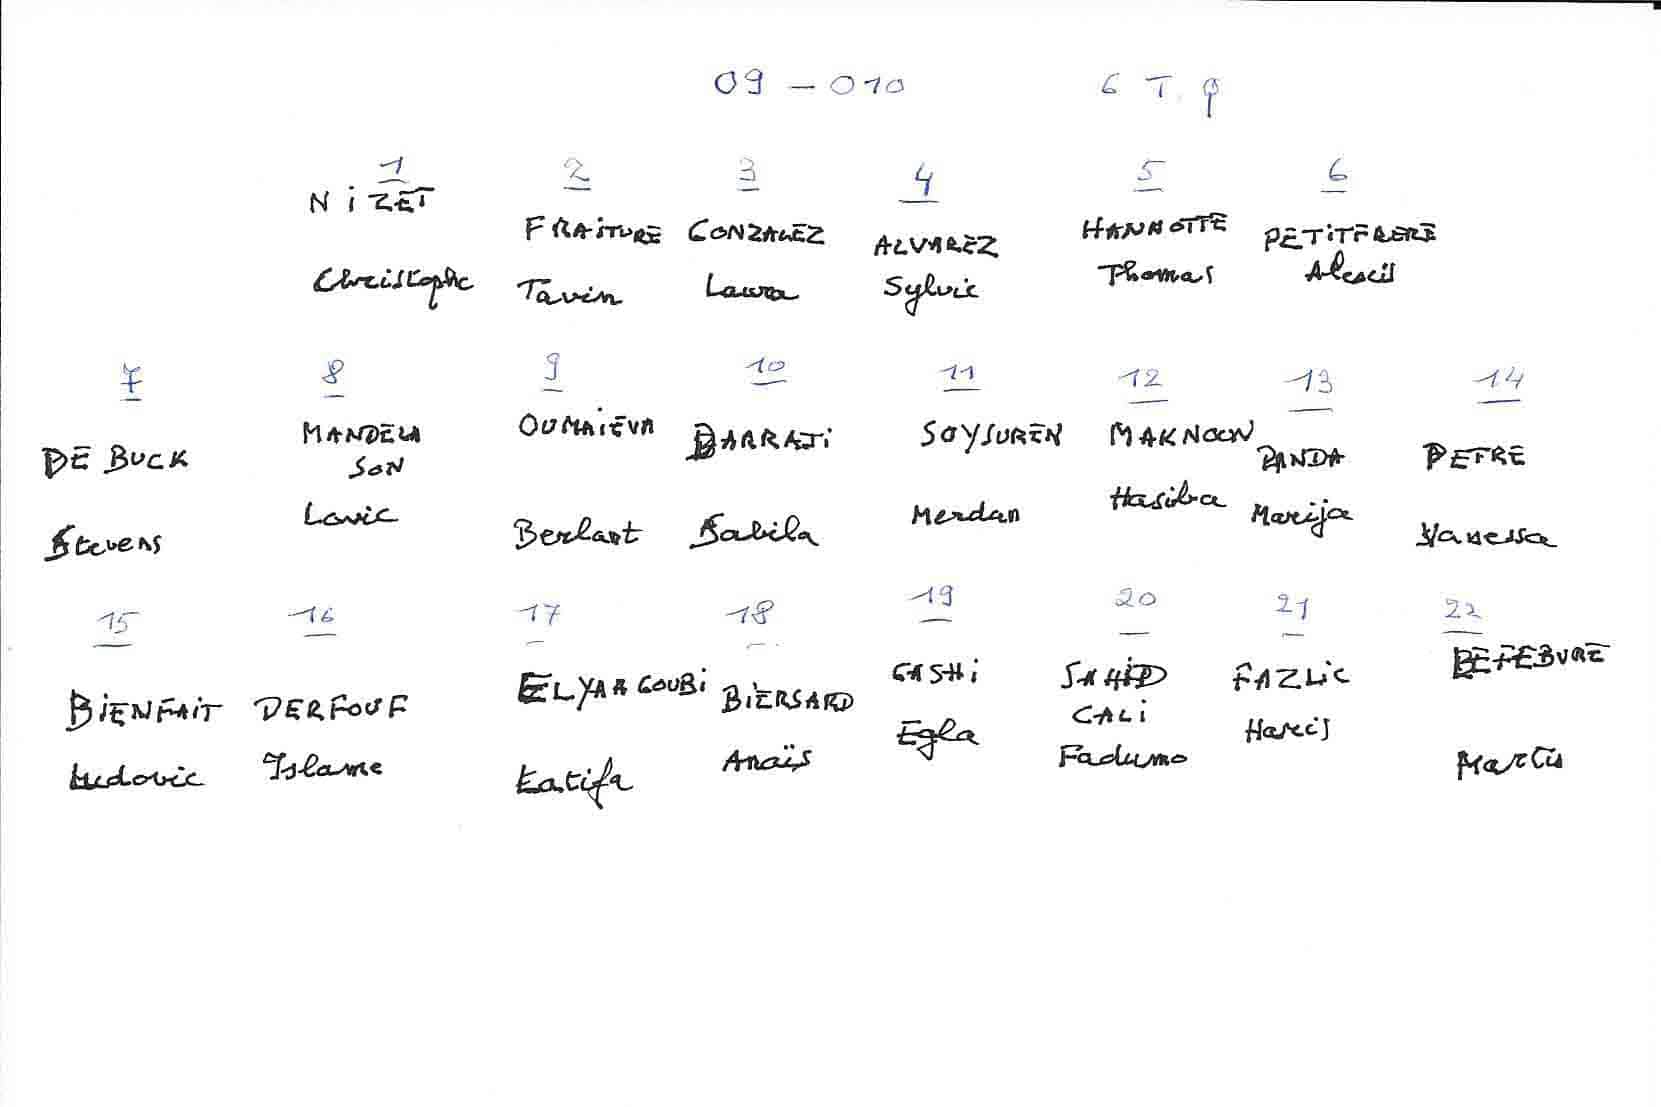 09 - 010 6 T. q
1 2 3 4 5 6
NiZET FRAiTURE GONZALEZ ALVAREZ HANNOTTE PETiTFRERE
Christophe Tavin Laura Sylvie Thomas Alexis
7 8 9 10 11 12 13 14
DE BUCK MANDELA OUMAiEVA BARRAJi SOYSUREN MAKNOON PANDA PETRE
SON
Stevens Lovic Berlant Sabila Merdan Hasiba Marija Vanessa
15 16 17 18 19 20 21 22
BiENFAiT DERFOUF ELYARGOUBi BiERSARD GASHi SAHiD FAZLiC LEFEBVRE
CALi
Ludovic Islame Latifa Anaïs Egla Fadumo Haris